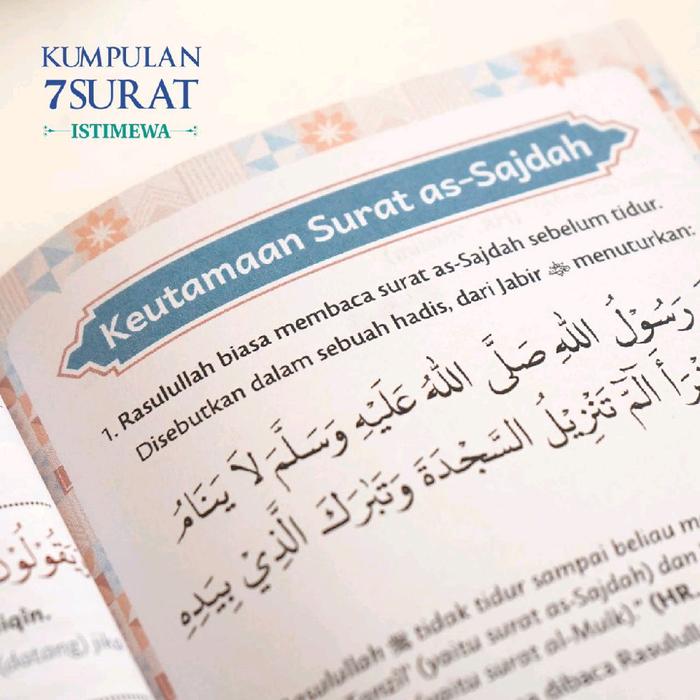 KUMPULAN
7SURAT
ISTIMEWA
Keutamaan Surat as-Sajdah
1. Rasulullah biasa membaca surat as-Sajdah sebelum tidur.
Disebutkan dalam sebuah hadis, dari Jabir ﷺ menuturkan:
رَسُوْلُ اللهِ صَلَّى اللهُ عَلَيْهِ وَسَلَّمَ لَا يَنَامُ
الٓمّٓ تَنْزِيْلُ السَّجْدَةَ وَتَبٰرَكَ الَّذِيْ بِيَدِهِ
ﷺ tidak tidur sampai beliau
(yaitu surat as-Sajdah) dan
(yaitu surat al-Mulk)." (HR.
dibaca
يَقُوْلُوْنَ
iqin.
(datang) jika